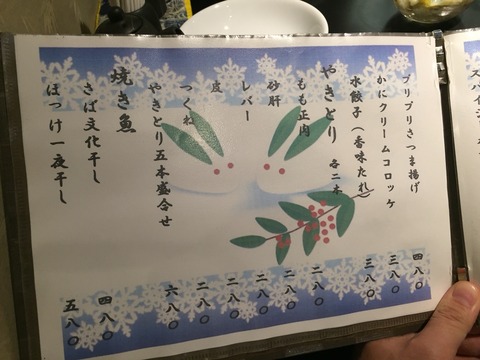 プリプリさつま揚げ 四八〇
かにクリームコロッケ 三八〇
水餃子(香味たれ) 三八〇
やきとり 各二本
もも正肉 二八〇
砂肝 二八〇
レバー 二八〇
皮 二八〇
つくね 二八〇
やきとり五本盛合せ 六八〇
焼き魚
さば文化干し 四八〇
ほっけ一夜干し 五八〇